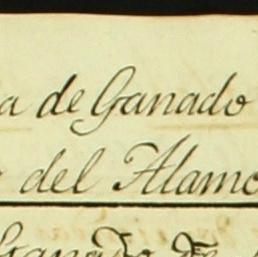 a de Ganado
del Alamo
Ganado